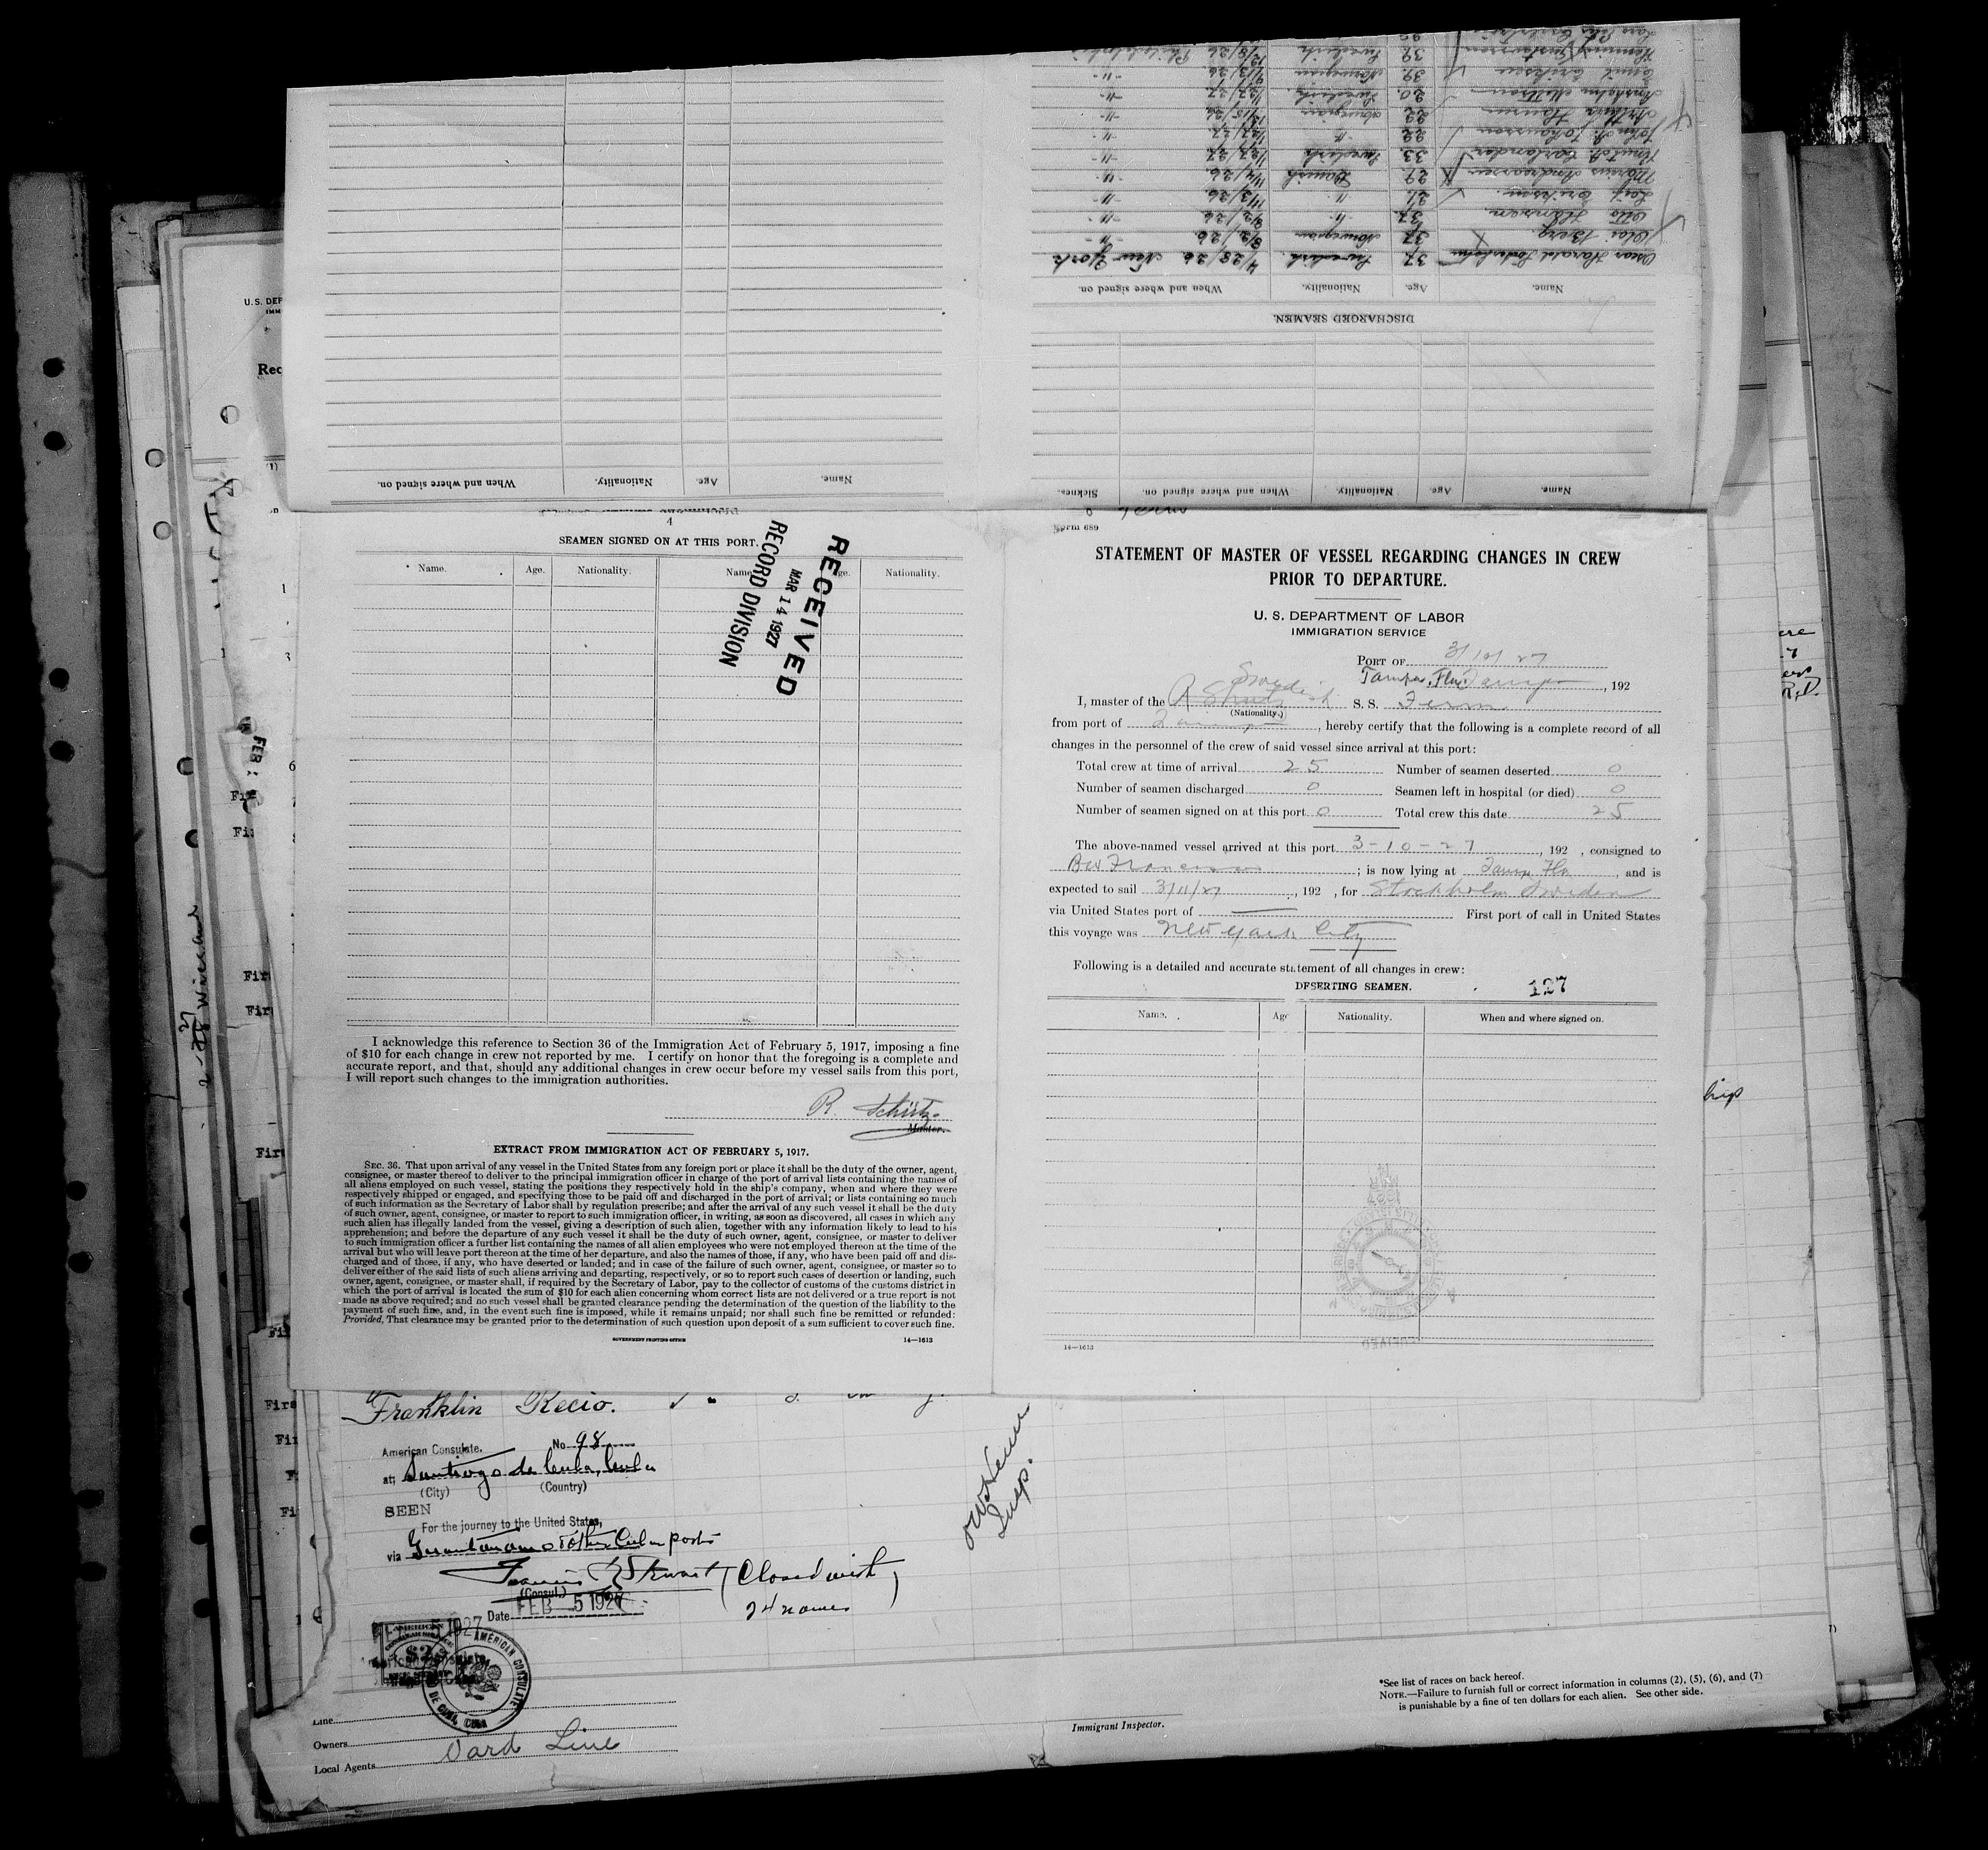 Lars
Henning Gustavsson 39 Swedish 12/8/26 Philadelphia
Emil Eriksen 39. Norwegian 9/13/26. -"-
20. Swedish. 1/27/27. -"-
Arthur Hansen 22 Norwegian -"-
John S. Johansson 22 -"- 1/27/27. -"-
Knut O. 33. Swedish 1/27/27 -"-
Marius Andreassen 29 Danish 11/4/26. -"-
Leif Eriksen. 21. -"- 11/3/26 -"-
Otto Hansen. 37. -"- 8/2/26. -"-
Olai Berg. 37 Norwegian 8/2/26. -"-
Oscar Harald 37 Swedish. 4/28/26 New York
Name. Age. Nationality. When and where signed on.
DISCHARGED SEAMEN.
Name. Age. Nationality. When and where signed on.
Name. Age. Nationality. When and where signed on. Sicknes
U.S. DEP
IMM
Rec
4
SEAMEN SIGNED ON AT THIS PORT.
Name. Age. Nationality. Name Age. Nationality.
RECEIVED
MAR 14 1927
RECORD DIVISION
I acknowledge this reference to Section 36 of the Immigration Act of February 5, 1917, imposing a fine
of $10 for each change in crew not reported by me. I certify on honor that the foregoing is a complete and
accurate report, and that, should any additional changes in crew occur before my vessel sails from this port,
I will report such changes to the immigration authorities.
R. Schütz.
Master.
EXTRACT FROM IMMIGRATION ACT OF FEBRUARY 5, 1917.
SEC. 36. That upon arrival of any vessel in the United States from any foreign port or place it shall be the duty of the owner, agent,
consignee, or master thereof to deliver to the principal immigration officer in charge of the port of arrival lists containing the names of
all aliens employed on such vessel, stating the positions they respectively hold in the ship's company, when and where they were
respectively shipped or engaged, and specifying those to be paid off and discharged in the port of arrival; or lists containing so much
of such information as the Secretary of Labor shall by regulation prescribe; and after the arrival of any such vessel it shall be the duty
of such owner, agent, consignee, or master to report to such immigration officer, in writing, as soon as discovered, all cases in which any
such alien has illegally landed from the vessel, giving a description of such alien, together with any information likely to lead to his
apprehension; and before the departure of any such vessel it shall be the duty of such owner, agent, consignee, or master to deliver
to such immigration officer a further list containing the names of all alien employees who were not employed thereon at the time of the
arrival but who will leave port thereon at the time of her departure, and also the names of those, if any, who have been paid off and dis-
charged and of those, if any, who have deserted or landed; and in case of the failure of such owner, agent, consignee, or master so to
deliver either of the said lists of such aliens arriving and departing, respectively, or so to report such cases of desertion or landing, such
owner, agent, consignee, or master shall, if required by the Secretary of Labor, pay to the collector of customs of the customs district in
which the port of arrival is located the sum of $10 for each alien concerning whom correct lists are not delivered or a true report is not
made as above required; and no such vessel shall be granted clearance pending the determination of the question of the liability to the
payment of such fine, and, in the event such fine is imposed, while it remains unpaid; nor shall such fine be remitted or refunded:
Provided, That clearance may be granted prior to the determination of such question upon deposit of a sum sufficient to cover such fine.
GOVERNMENT PRINTING OFFICE 14—1613
Form 689
STATEMENT OF MASTER OF VESSEL REGARDING CHANGES IN CREW
PRIOR TO DEPARTURE.
U. S. DEPARTMENT OF LABOR
IMMIGRATION SERVICE
PORT OF 3/10/27
Tampa, Fla. Tampa , 192
I, master of the Swedish S. S. Ferm
(Nationality.)
from port of Tampa , hereby certify that the following is a complete record of all
changes in the personnel of the crew of said vessel since arrival at this port:
Total crew at time of arrival 25 Number of seamen deserted 0
Number of seamen discharged 0 Seamen left in hospital (or died) 0
Number of seamen signed on at this port 0 Total crew this date 25
The above-named vessel arrived at this port 3-10-27 , 192 , consigned to
; is now lying at Tampa Fla , and is
expected to sail 3/11/27 , 192 , for Stockholm Sweden
via United States port of — First port of call in United States
this voyage was New York City
Following is a detailed and accurate statement of all changes in crew:
DESERTING SEAMEN. 127
Name. Age Nationality. When and where signed on.
14—1613
Franklin Recio.
American Consulate. No 98
at Santiago de Cuba, Cuba
(City) (Country)
SEEN
For the journey to the United States,
via Guantanamo & other Cuban ports
Francis R Stewart (Closed with
(Consul.) 24 names)
Date FEB 5 1927
Insp.
AMERICAN CONSULATE
DE CUBA, CUBA
Line
Owners
Local Agents Ward Line
Immigrant Inspector.
*See list of races on back hereof.
NOTE.—Failure to furnish full or correct information in columns (2), (5), (6), and (7)
is punishable by a fine of ten dollars for each alien. See other side.